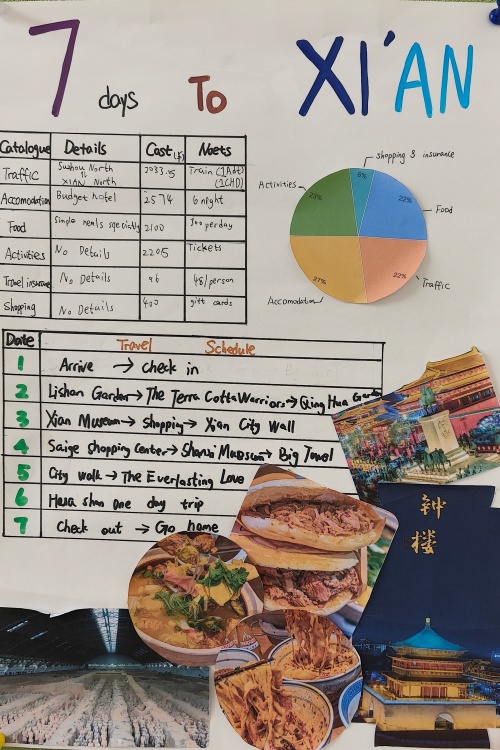 7 days To XI'AN
Catalogue Details Cost(¥) Noets
Traffic Suzhou North XIAN North 2033.5 Train (1Adt) (1CHD)
Accomodation Budget hotel 2574 6 night
Food Simple meals specially 2100 300 per day
Activities No Details 2205 Tickets
Travel insurance No Details 96 48/person
Shopping No Details 400 gift cards
Shopping & insurance
Activities
Food
Traffic
Accomodation
23%
5%
22%
27%
22%
Date Travel Schedule
1 Arrive → check in
2 Lishan Garden → The Terra Cotta Warriors → Qing Hua
3 Xian Museum → shopping → Xian City Wall
4 Saige shopping Center → Shanxi Museum → Big Towel
5 City walk → The Everlasting Love
6 Huashan one day trip
7 Check out → Go home
钟楼